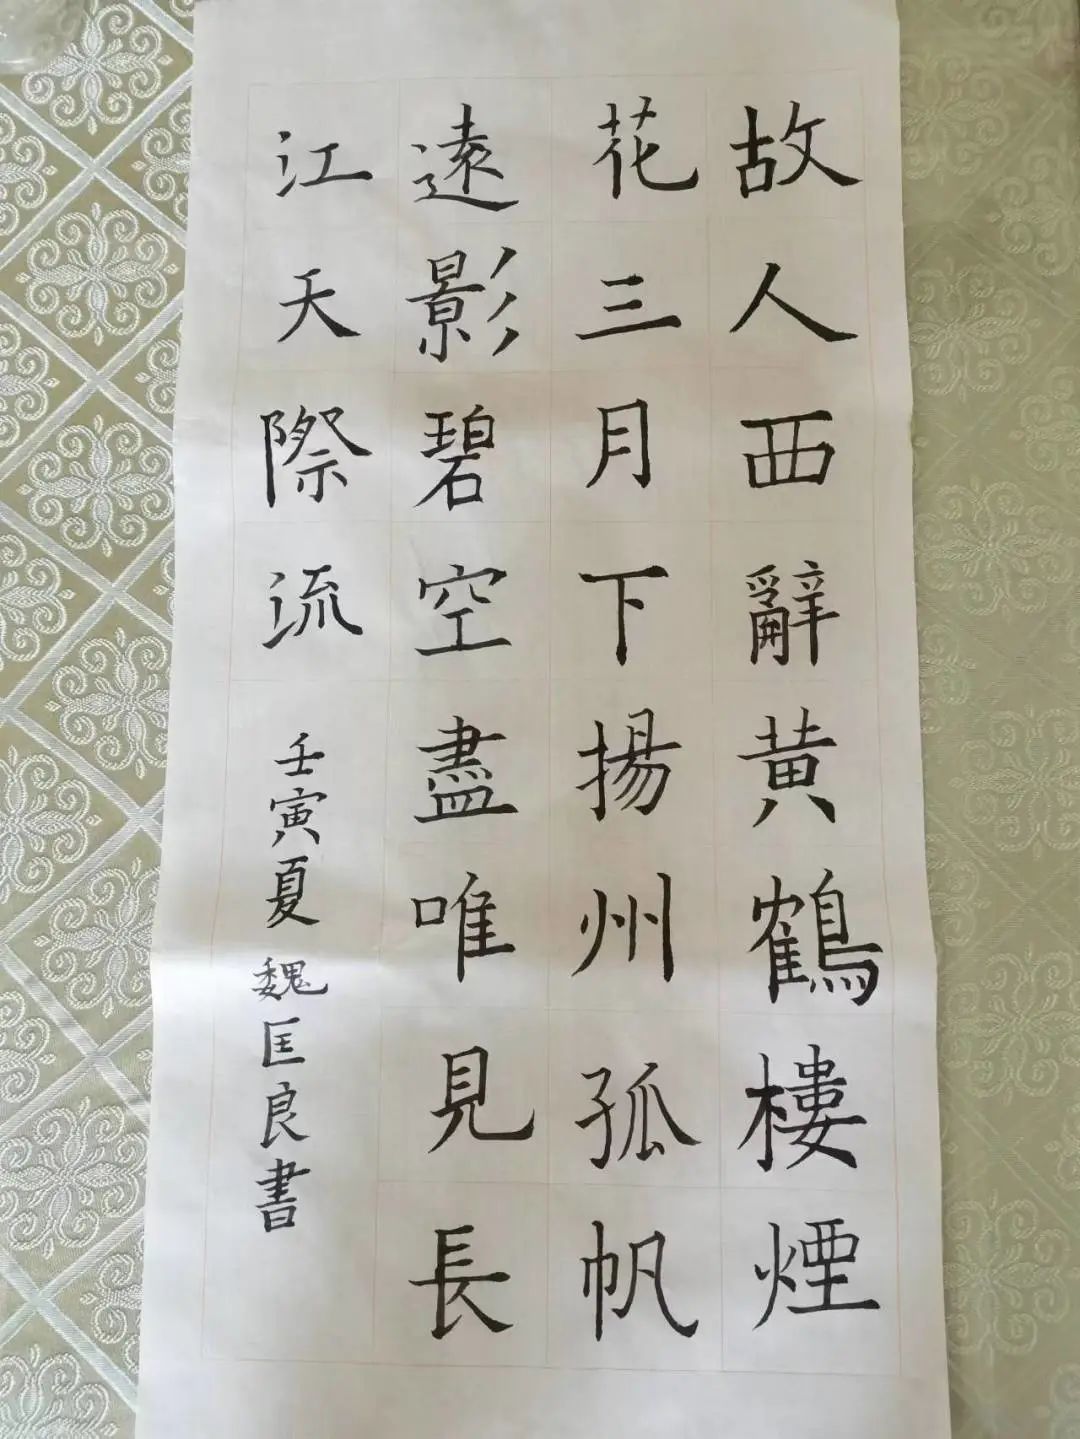 故人西辭黃鶴樓煙
花三月下揚州孤帆
遠影碧空盡唯見長
江天際流
壬寅夏魏匡良書